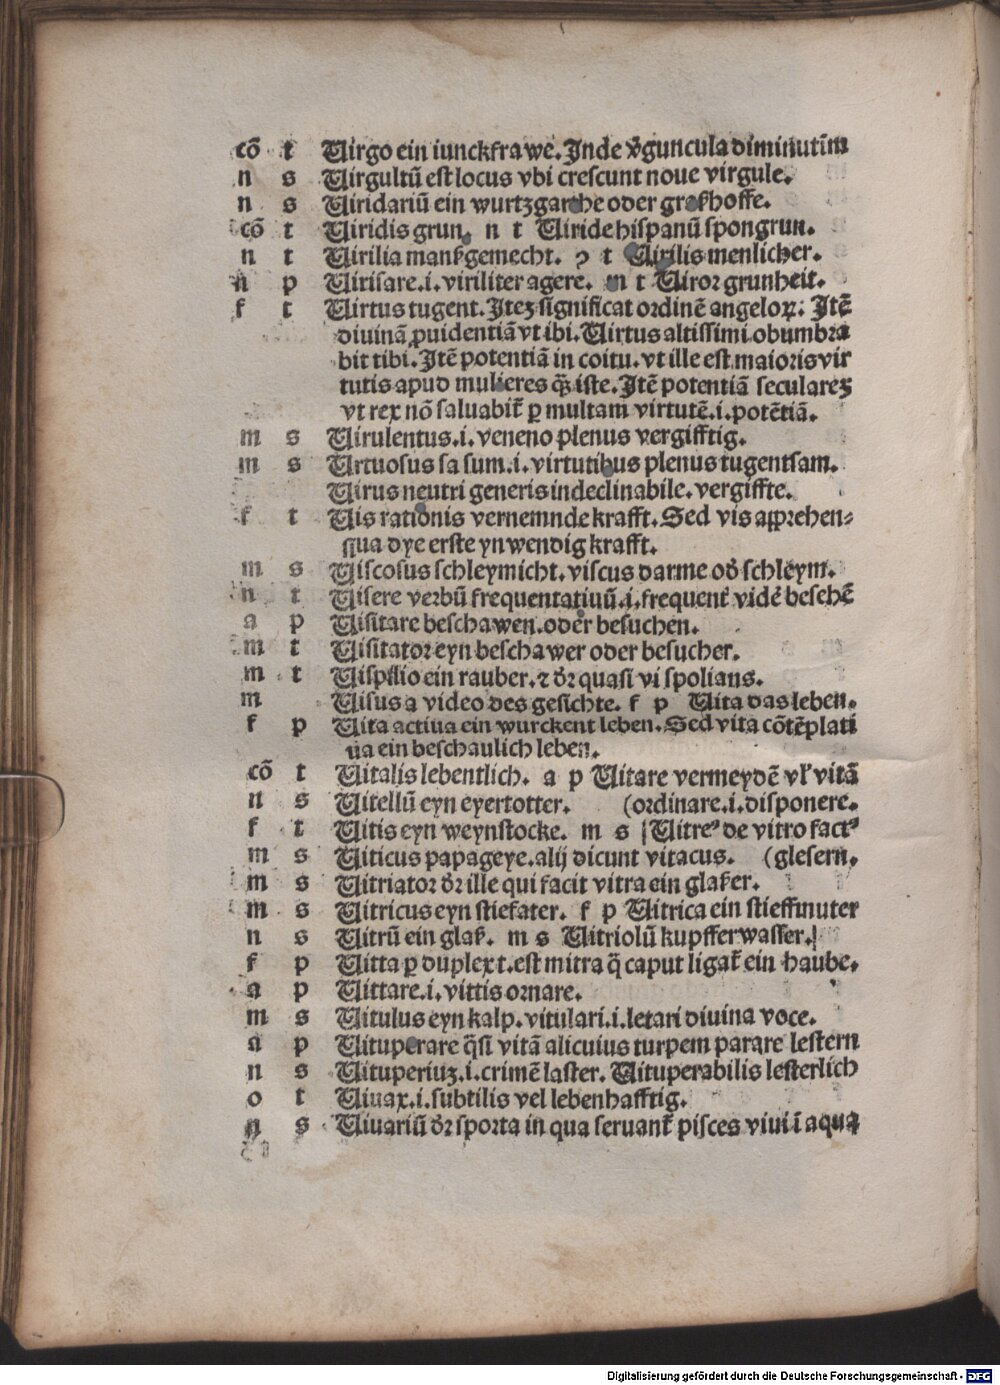 cō t Uirgo ein iunckfrawe. Inde v̄guncula diminutiūm
n s Uirgultū est locus vbi crescunt noue virgule.
n s Uiridariū ein wurtzgarthe oder graßhoffe.
cō t Uiridis grun. n t Uiride hispanū spongrun.
n t Uirilia manßgemecht. ꝯ t Uirilis menlicher.
n p Uirisare .i. viriliter agere. m t Uiror grunheit.
f t Uirtus tugent. Iteꝫ significat ordinē angeloꝝ. Itē
diuinā ꝓuidentiā vt ibi. Uirtus altissimi obumbra
bit tibi. Itē potentiā in coitu. vt ille est maioris vir
tutis apud mulieres q̄ꝫ iste. Itē potentiā seculareꝫ
vt rex nō saluabit̄ ꝑ multam virtutē .i. potētiā.
m s Uirulentus .i. veneno plenus vergifftig.
m s Urtuosus sa sum .i. virtutibus plenus tugentsam.
Uirus neutri generis indeclinabile. vergiffte.
f t Uis rationis vernemnde krafft. Sed vis apprehen⸗
siua dye erste ynwendig krafft.
m s Uiscosus schleymicht. viscus darme od̄ schleym.
n t Uisere verbū frequentatiuū .i. frequent̄ vidē beschē
a p Uisitare beschawen. oder besuchen.
m t Uisitator eyn beschawer oder besucher.
m t Uispilio ein rauber. ⁊ d̄r quasi vi spolians.
m Uisus a video des gesichte. f p Uita das leben.
f p Uita actiua ein wurckent leben. Sed vita cōtēplati
ua ein beschaulich leben.
cō t Uitalis lebentlich. a p Uitare vermeydē vl' vitā
n s Uitellū eyn eyertotter. (ordinare .i. disponere.
f t Uitis eyn weynstocke. m s Uitreꝰ de vitro factꝰ
m s Uiticus papageye. alij dicunt vitacus. (glesern.
m s Uitriator d̄r ille qui facit vitra ein glaßer.
m s Uitricus eyn stiefater. f p Uitrica ein stieffmuter
n s Uitrū ein glaß. m s Uitriolū kupfferwasser.
f p Uitta ꝑ duplex t. est mitra q̄ caput ligat̄ ein haube.
a p Uittare .i. vittis ornare.
m s Uitulus eyn kalp. vitulari .i. letari diuina voce.
a p Uituperare q̄si vitā alicuius turpem parare lestern
n s Uituperiuꝫ .i. crimē laster. Uituperabilis lesterlich
o t Uiuax .i. subtilis vel lebenhafftig.
n s Uiuariū d̄r sporta in qua seruant̄ pisces viui ī aqua
Digitalisierung gefördert durch die Deutsche Forschungsgemeinschaft - DFG